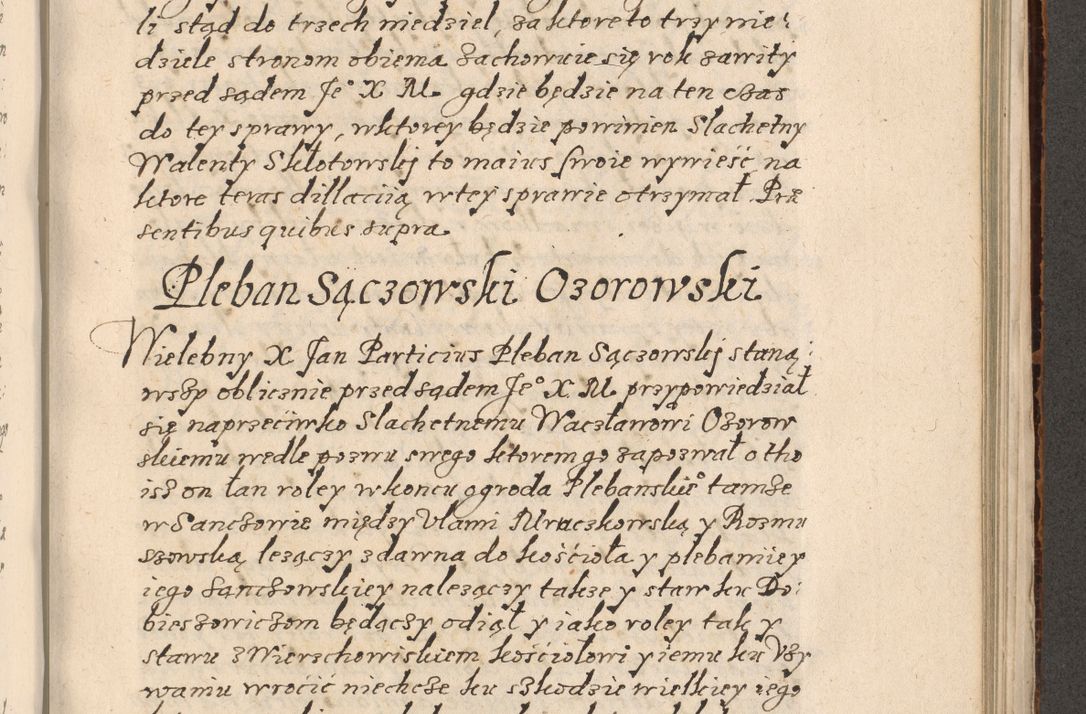 li stąd do trzech niedziel, za ktore to trzy nie:
dziele stronom obiema zachowuie się rok zawity
przed sądem Je° X M. gdzie będzie na ten czas
do tey sprawy, w ktorey będzie powinien Slachetny
Walenty Skłotowskj to maius swoie wywieść na
ktore teras dillacyią w tey sprawie otrzymał. Præ
sentibus quibus supra.
Pleban Sączowski Ozorowski
Wielebny X Jan Particius Pleban Sączowskj staną:
wszy oblicznie przed sądem Je° X M. przypowiedział
się naprzećiwko Slachetnemu Waczławowi Ozorow
skiemu wedle pozwu swego ktorem go zapozwał o tho
isz on łan roley w koncu ogroda Plebanskie° tamze
w Sanczowie między Ulami Mraczkowską y Rozmu
szowską lezączy zdawna do kościoła y plebaniiey
iego Sanczowskiey nalezączy takze y staw ku Do:
bieszowiczom będączy odiął y iako roley tak y
stawu z Wierzchowiskiem kościołowi y iemu ku Vzy
waniu wrocić niechcze ku szkodzie wielkiey iego